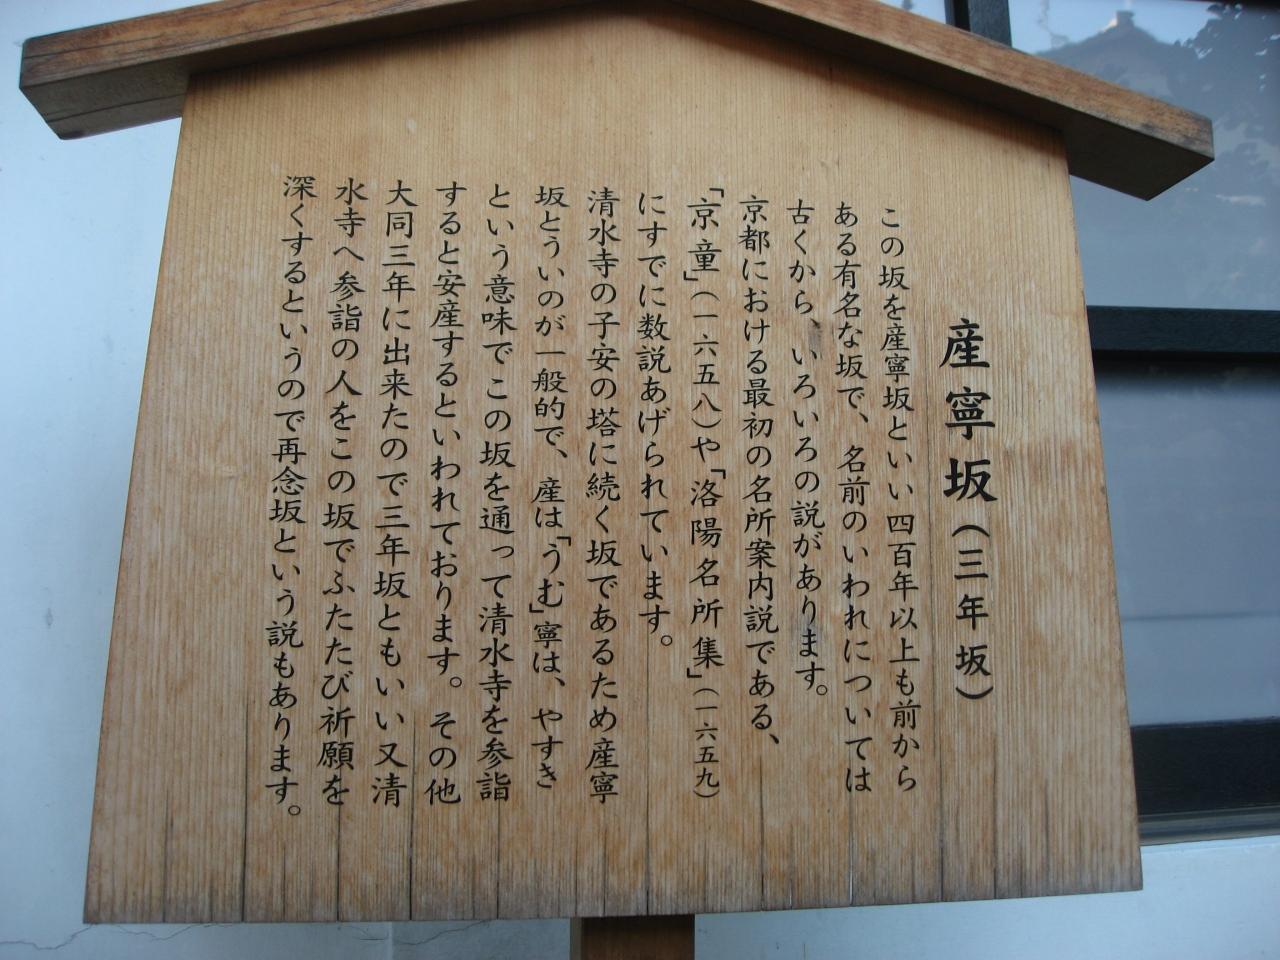 産寧坂(三年坂)
この坂を産寧坂といい四百年以上も前から
ある有名な坂で、名前のいわれについては
古くから、いろいろの説があります。
京都における最初の名所案内説である、
「京童」(一六五八)や「洛陽名所集」(一六五九)
にすでに数説あげられています。
清水寺の子安の塔に続く坂であるため産寧
坂とういのが一般的で、産は「うむ」寧は、やすき
という意味でこの坂を通って清水寺を参詣
すると安産するといわれております。その他
大同三年に出来たので三年坂ともいい又清
水寺へ参詣の人をこの坂でふたたび祈願を
深くするというので再念坂という説もあります。